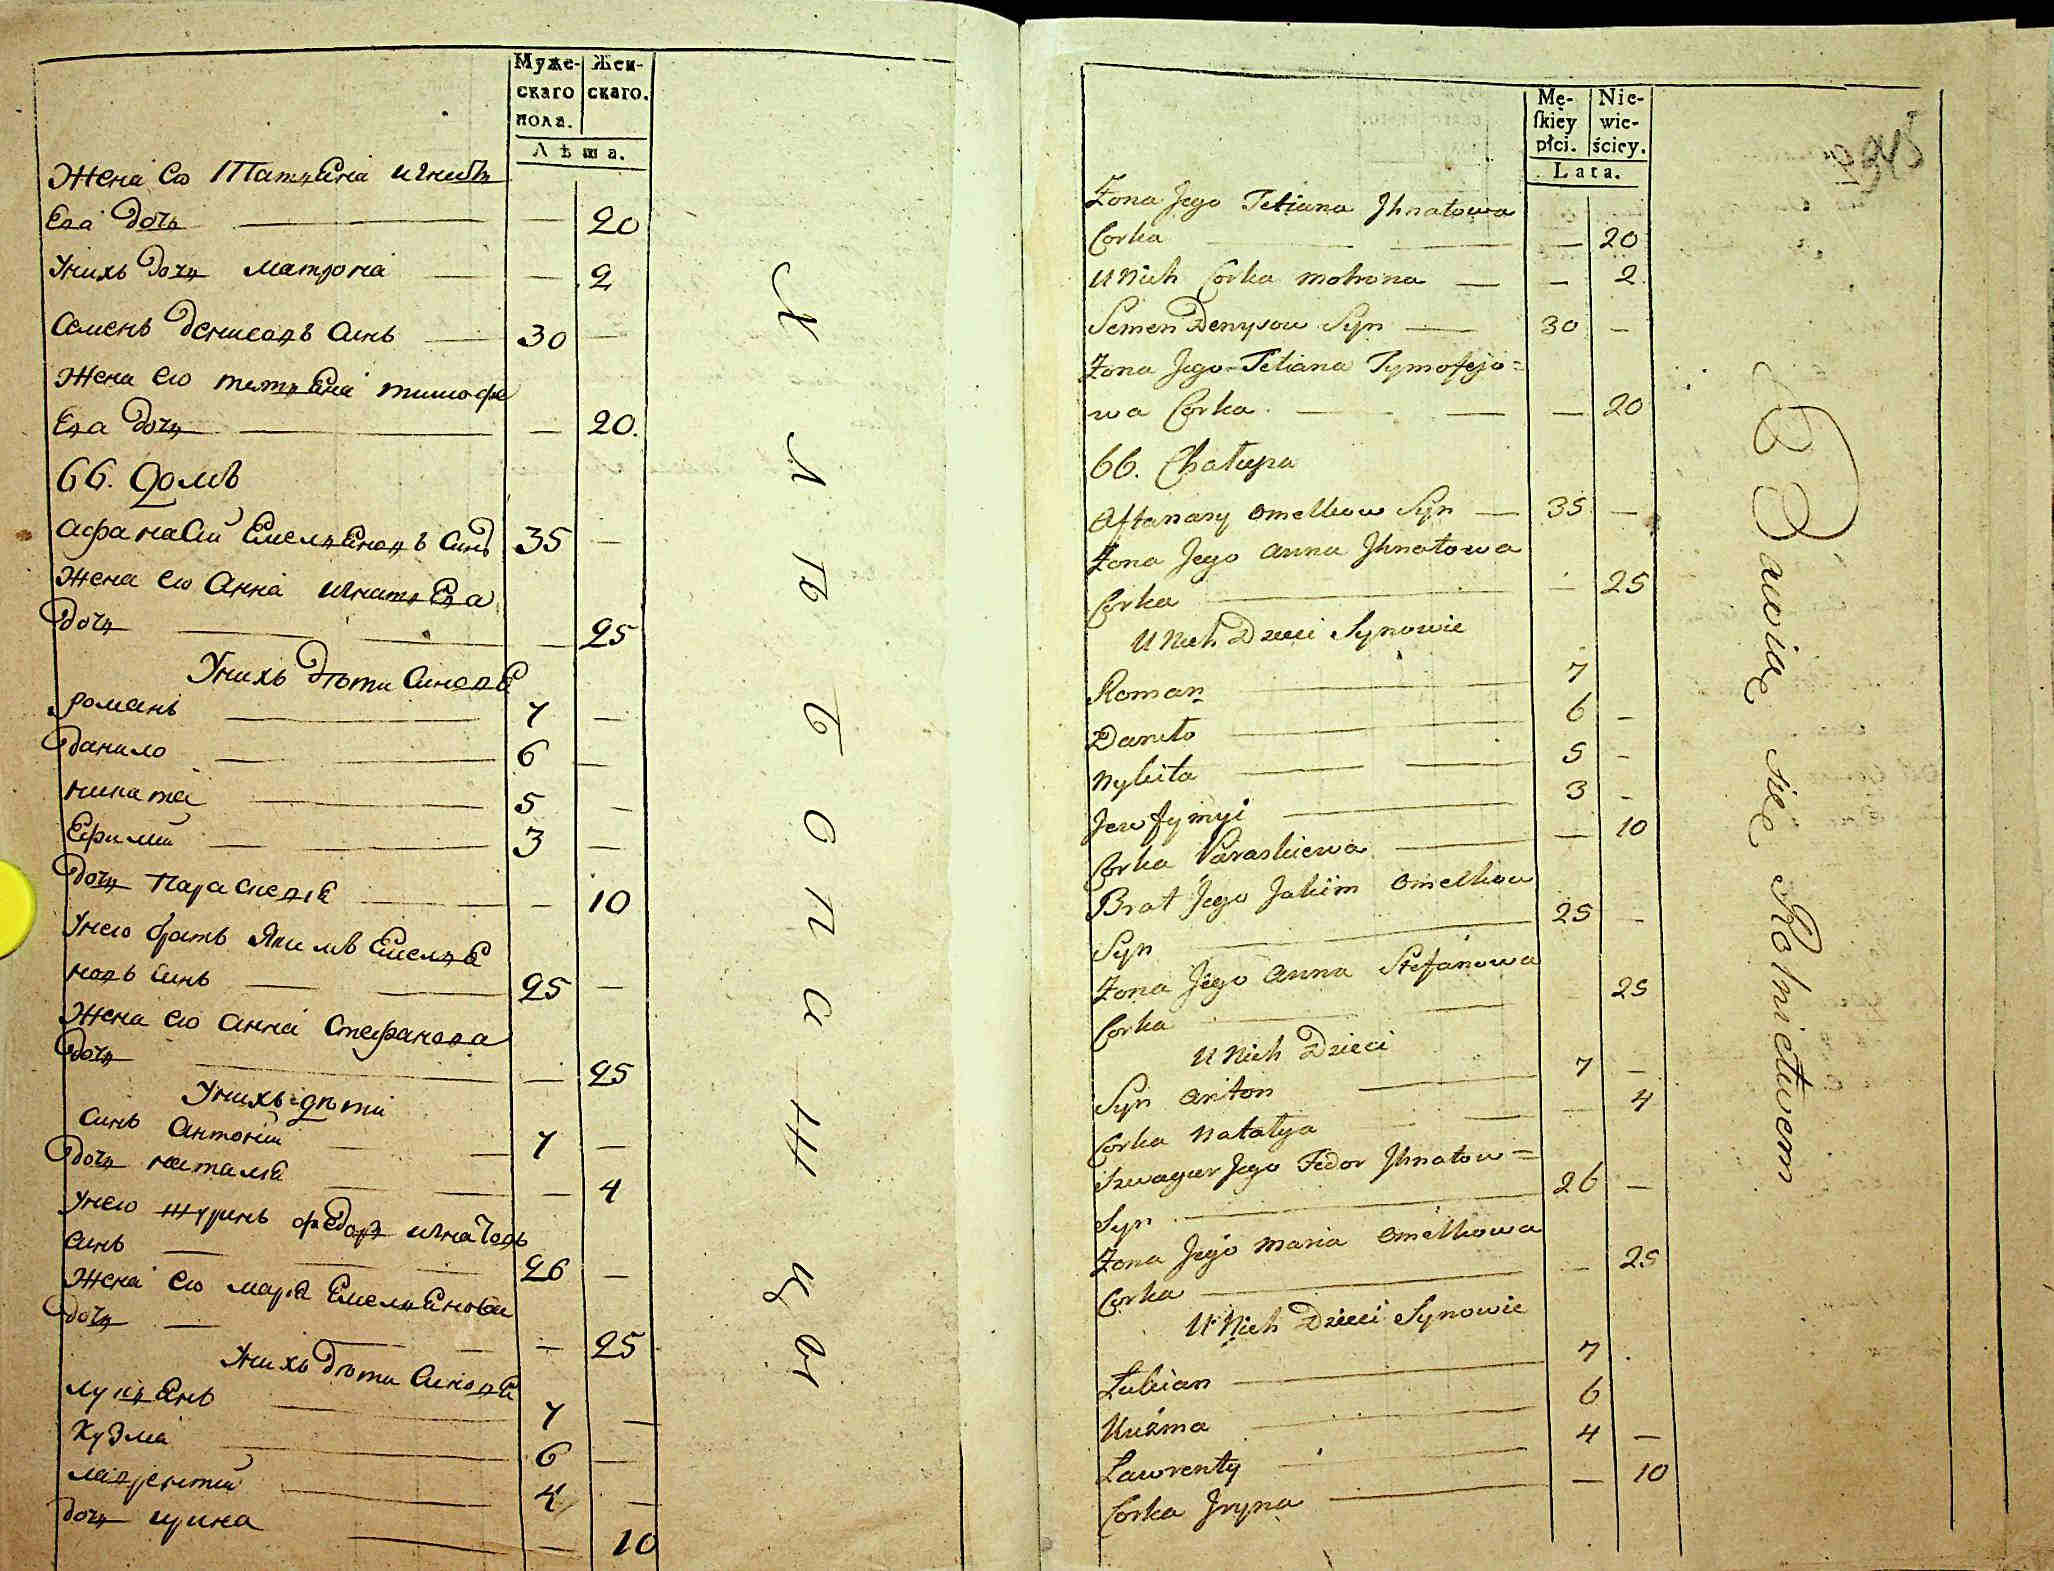 Муже-
скаго
пола.
Жен-
скаго.
Лѣта.
Жена Его Татіяна Игнать
Ева дочь — — 20
Унихъ дочь Матрона — — 2
Семенъ Денисовъ синъ — 30 —
Жена его татіяна тимофе
Ева дочь — — 20.
66. Домъ
Афанасий Емеляновъ Синъ 35 —
Жена его Анна Игнатева
дочь — — 25
Унихъ дѣти Синове
романъ — 7 —
данило — 6 —
никита — 5 —
Ефимий — 3 —
дочь Параскевія — — 10
Унего братъ Якимъ Емеля
новъ синъ — 25 —
Жена его Анна Стефанова
дочь — — 25
Унихъ дѣти
синъ Антоний — 7 —
дочь наталія — — 4
Унего шуринъ федоръ игнатовъ
синъ — 26 —
Жена его марія Емелянова
дочь — — 25
Унихъ дѣти Синове
лукіянъ — 7 —
Кузма — 6 —
лаврентий — 4 —
дочь ирина — — 10
Хлѣбопашцы
Mę-
ſkiey
płci.
Nie-
wie-
ściey.
Lata.
Żona Jego Tetiana Jhnatowa
Corka — — 20
U Nich Corka Motrona — — 2
Semen Denysow Syn — 30 —
Żona Jego Tetiana Tymofejo=
wa Corka — — 20
66. Chałupa
Aftanazy Omelkow Syn — 35 —
Żona Jego Anna Jhnatowa
Corka — — 25
U Nich Dzieci Synowie
Roman — 7
Daniło — 6 —
Nykita — 5 —
Jewfymyi — 3 —
Corka Paraskiewa — — 10
Brat Jego Jakim Omelkow
Syn — 25 —
Żona Jego Anna Stefanowa
Corka — 25
U Nich Dzieci
Syn Anton — 7 —
Corka Natalya — — 4
Szwagier Jego Fedor Jhnatow=
Syn — 26 —
Żona Jego Maria Omelkowa
Corka — — 25
U Nich Dzieci Synowie
Łukian — 7
Kuźma — 6
Ławrenty — 4 —
Corka Jryna — — 10
Bawią się Rolnictwem